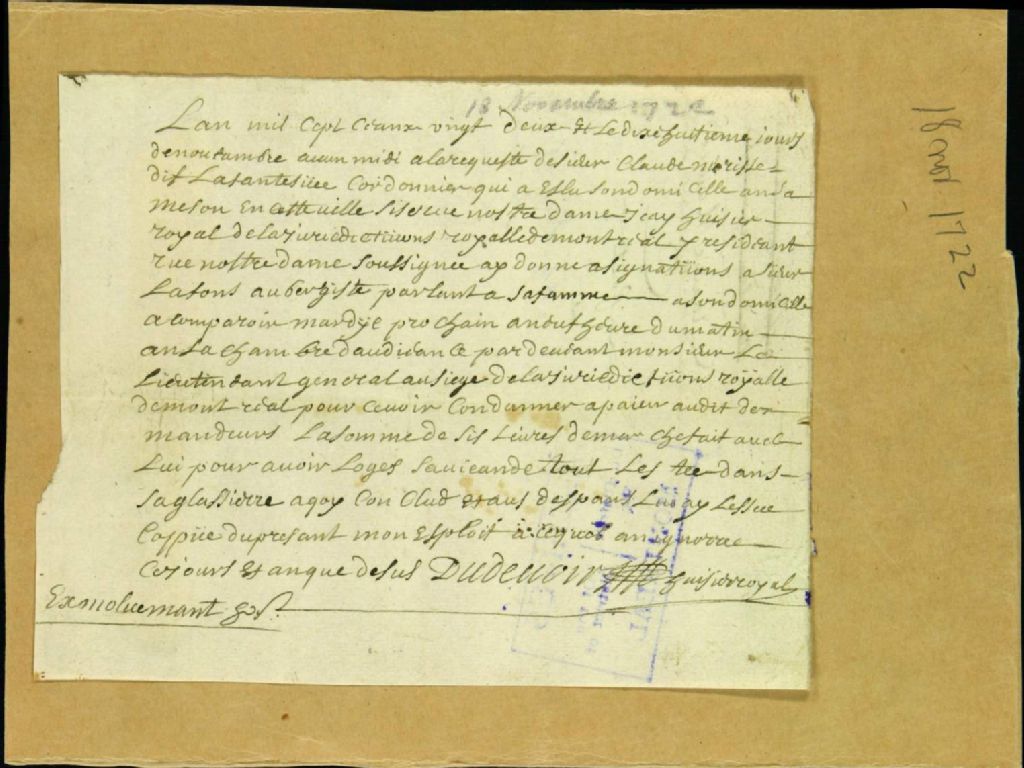 18 Novembre 1722
Lan mil Cept Ceanx vingt deux et Le dixehuitieme jours
denouvambre avan midi a larequeste desieur Claude morisse
dit Lafantesiee Cordonnier qui a Eslu sondomicille ansa
meson En cette ville sise rue nostre dame Jean huisier
royal dela juriedictiions royalle de montreal y resideant
rue nostre dame soussignee ay donne asignatiions a sieur
Lafons aubergiste parlant a safamme a sondomicille
a Comparoir mardye prochain aneufheure dumatin
an La chambre daudieance pardevant monsieur Le
Lieutendant general ausiege dela juriedictiions royalle
demont real pour cevoir Condanner a paier audit de
mandeurs La somme de sis Livres demarche fait avec
Lui pour avoir Loges saviande tout Les tee dans
saglassierre a quoy Con Clud et aus despans Luy ay Lessee
Coppiee dupresant mon Esploit a ce quil an ignorre
Ce jours et an que desus Dudevoir huisier royal
Exmoluemant 30s
18 nov. 1722